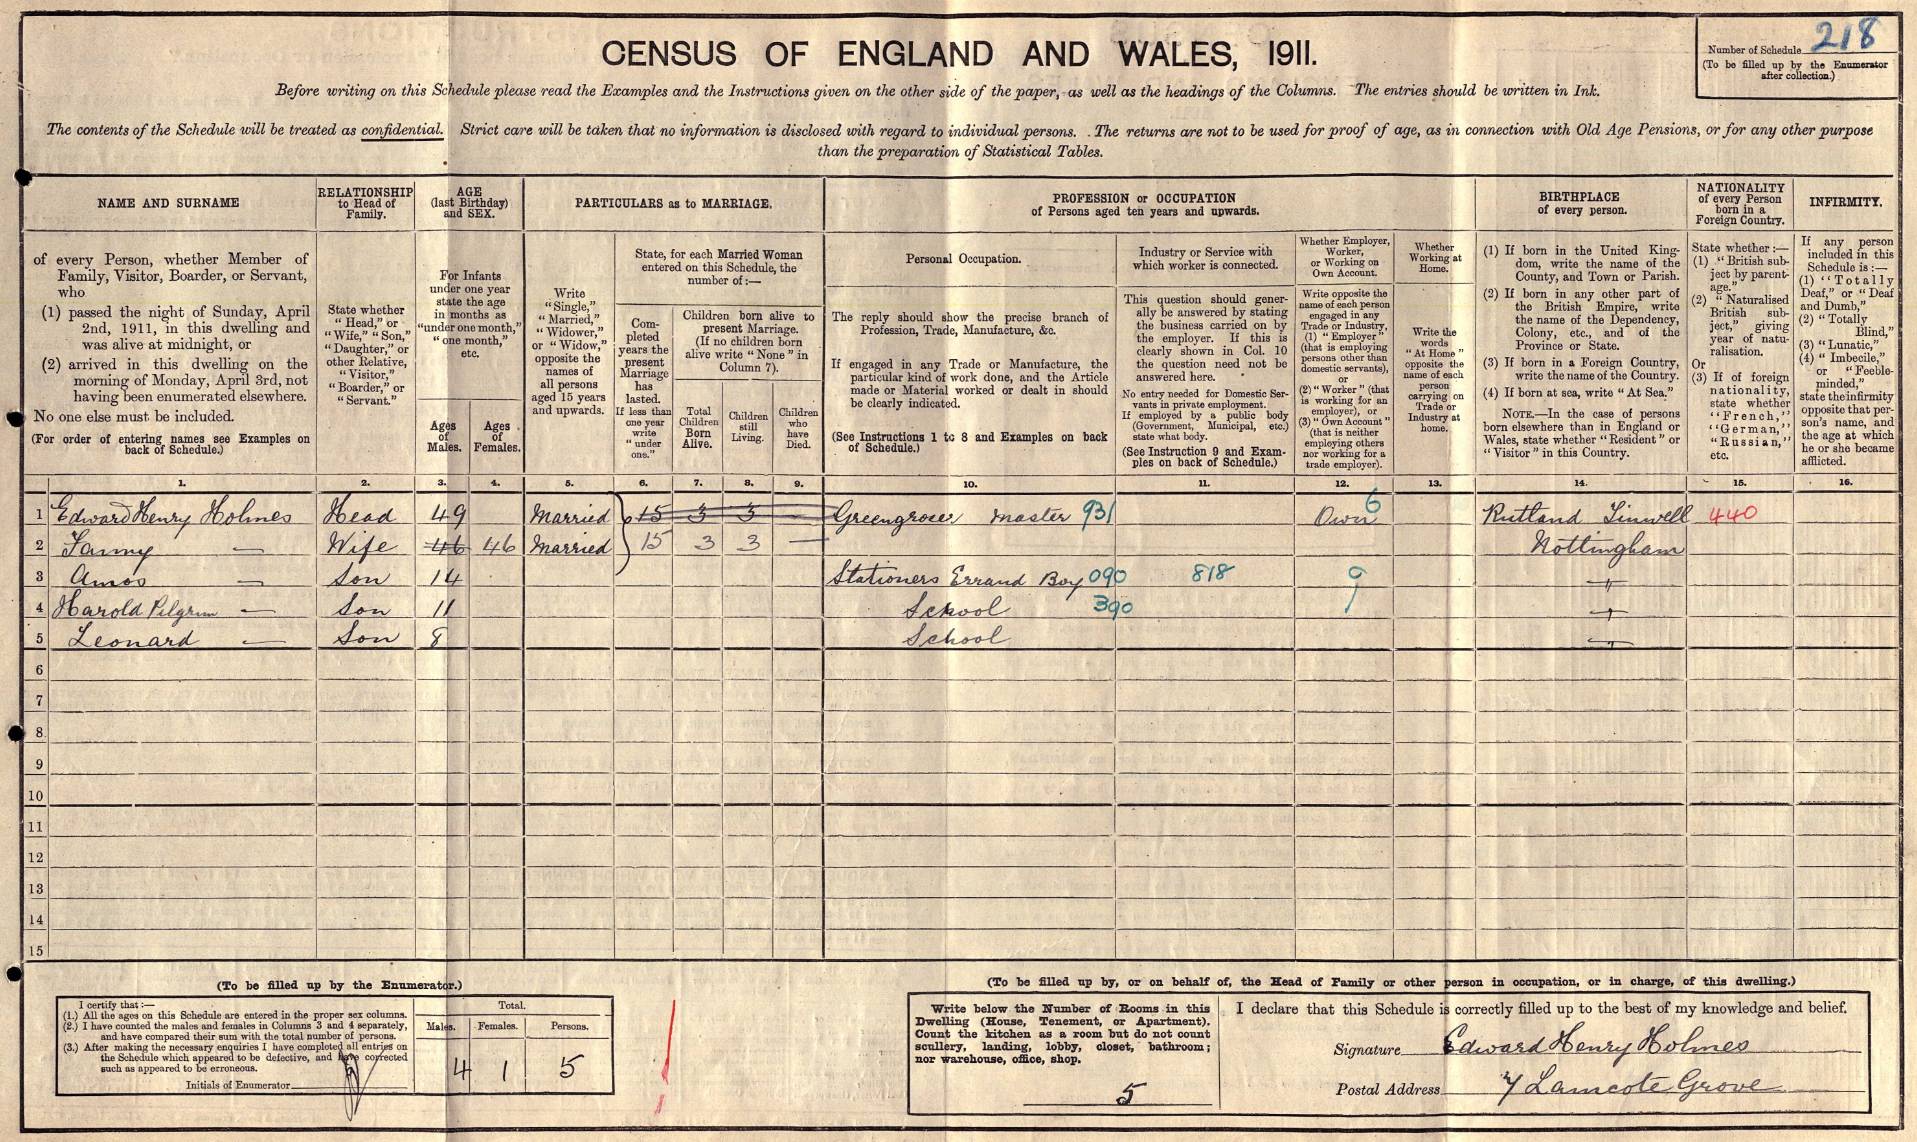 CENSUS OF ENGLAND AND WALES, 1911.
Number of Schedule 218
(To be filled up by the Enumerator
after collection.)
Before writing on this Schedule please read the Examples and the Instructions given on the other side of the paper, as well as the headings of the Columns. The entries should be written in Ink.
The contents of the Schedule will be treated as confidential. Strict care will be taken that no information is disclosed with regard to individual persons. The returns are not to be used for proof of age, as in connection with Old Age Pensions, or for any other purpose
than the preparation of Statistical Tables.
NAME AND SURNAME
of every Person, whether Member of
Family, Visitor, Boarder, or Servant,
who
(1) passed the night of Sunday, April
2nd, 1911, in this dwelling and
was alive at midnight, or
(2) arrived in this dwelling on the
morning of Monday, April 3rd, not
having been enumerated elsewhere.
No one else must be included.
(For order of entering names see Examples on
back of Schedule.)
RELATIONSHIP
to Head of
Family.
State whether
"Head," or
"Wife," "Son,"
"Daughter," or
other Relative,
"Visitor,"
"Boarder," or
"Servant."
AGE
(last Birthday)
and SEX.
For Infants
under one year
state the age
in months as
"under one month,"
"one month,"
etc.
Ages
of
Males.
Ages
of
Females.
PARTICULARS as to MARRIAGE.
Write
"Single,"
"Married,"
"Widower,"
or "Widow,"
opposite the
names of
all persons
aged 15 years
and upwards.
State, for each Married Woman
entered on this Schedule, the
number of:—
Com-
pleted
years the
present
Marriage
has
lasted.
If less than
one year
write
"under
one."
Children born alive to
present Marriage.
(If no children born
alive write "None" in
Column 7).
Total
Children
Born
Alive.
Children
still
Living.
Children
who
have
Died.
PROFESSION or OCCUPATION
of Persons aged ten years and upwards.
Personal Occupation.
The reply should show the precise branch of
Profession, Trade, Manufacture, &c.
If engaged in any Trade or Manufacture, the
particular kind of work done, and the Article
made or Material worked or dealt in should
be clearly indicated.
(See Instructions 1 to 8 and Examples on back
of Schedule.)
Industry or Service with
which worker is connected.
This question should gener-
ally be answered by stating
the business carried on by
the employer. If this is
clearly shown in Col. 10
the question need not be
answered here.
No entry needed for Domestic Ser-
vants in private employment.
If employed by a public body
(Government, Municipal, etc.)
state what body.
(See Instruction 9 and Exam-
ples on back of Schedule.)
Whether Employer,
Worker,
or Working on
Own Account.
Write opposite the
name of each person
engaged in any
Trade or Industry,
(1) "Employer"
(that is employing
persons other than
domestic servants),
or
(2) "Worker" (that
is working for an
employer), or
(3) "Own Account"
(that is neither
employing others
nor working for a
trade employer).
Whether
Working at
Home.
Write the
words
"At Home"
opposite the
name of each
person
carrying on
Trade or
Industry at
home.
BIRTHPLACE
of every person.
(1) If born in the United King-
dom, write the name of the
County, and Town or Parish.
(2) If born in any other part of
the British Empire, write
the name of the Dependency,
Colony, etc., and of the
Province or State.
(3) If born in a Foreign Country,
write the name of the Country.
(4) If born at sea, write "At Sea."
NOTE.—In the case of persons
born elsewhere than in England or
Wales, state whether "Resident" or
"Visitor" in this Country.
NATIONALITY
of every Person
born in a
Foreign Country.
State whether :—
(1) "British sub-
ject by parent-
age."
(2) "Naturalised
British sub-
ject," giving
year of natu-
ralisation.
Or
(3) If of foreign
nationality,
state whether
"French,"
"German,"
"Russian,"
etc.
INFIRMITY.
If any person
included in this
Schedule is :—
(1) "Totally
Deaf," or "Deaf
and Dumb,"
(2) "Totally
Blind,"
(3) "Lunatic,"
(4) "Imbecile,"
or "Feeble-
minded,"
state the infirmity
opposite that per-
son's name, and
the age at which
he or she became
afflicted.
1. 2. 3. 4. 5. 6. 7. 8. 9. 10. 11. 12. 13. 14. 15. 16.
1 Edward Henry Holmes Head 49 Married 15 3 3 — Greengrocer master 931 Own 6 Rutland Linwell 440
2 Fanny — Wife 46 46 Married 15 3 3 — Nottingham
3 Amos — Son 14 Stationers Errand Boy 090 818 9 "
4 Harold Pilgrim — Son 11 School 390 "
5 Leonard — Son 8 School "
6
7
8
9
10
11
12
13
14
15
(To be filled up by the Enumerator.)
I certify that :—
(1.) All the ages on this Schedule are entered in the proper sex columns.
(2.) I have counted the males and females in Columns 3 and 4 separately,
and have compared their sum with the total number of persons.
(3.) After making the necessary enquiries I have completed all entries on
the Schedule which appeared to be defective, and have corrected
such as appeared to be erroneous.
Initials of Enumerator
Total.
Males. Females. Persons.
4 1 5
(To be filled up by, or on behalf of, the Head of Family or other person in occupation, or in charge, of this dwelling.)
Write below the Number of Rooms in this
Dwelling (House, Tenement, or Apartment).
Count the kitchen as a room but do not count
scullery, landing, lobby, closet, bathroom;
nor warehouse, office, shop.
5
I declare that this Schedule is correctly filled up to the best of my knowledge and belief.
Signature Edward Henry Holmes
Postal Address 7 Lamcote Grove